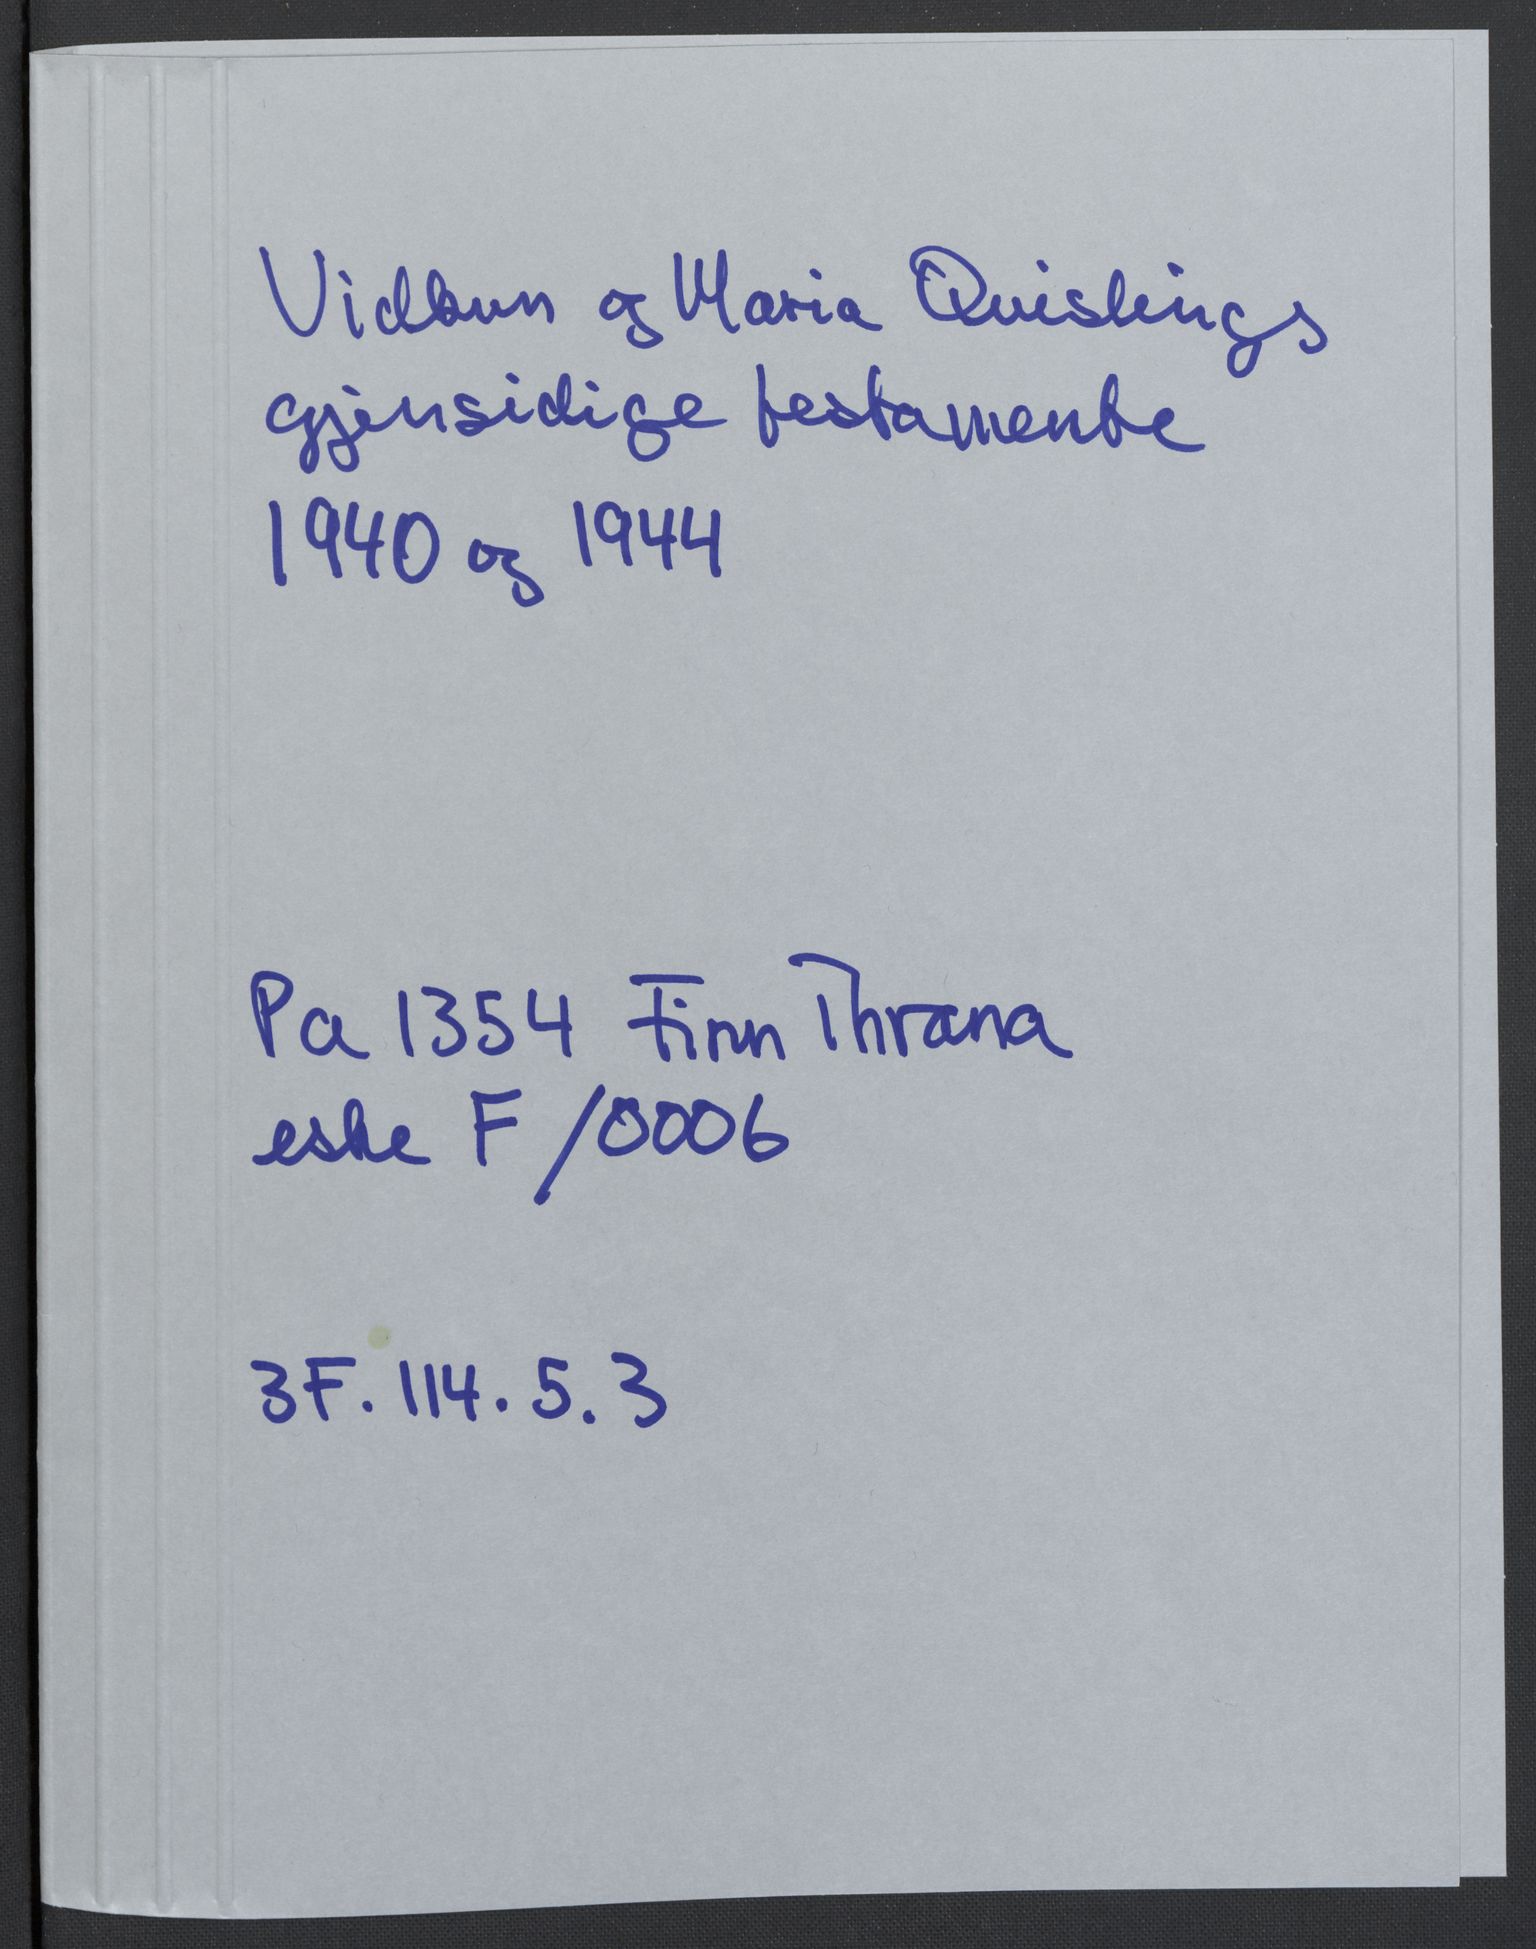 Vidkun og Maria Quislings
gjensidige testamente
1940 og 1944
Pa 1354 Finn Thrana
eske F /0006
3F. 114. 5. 3